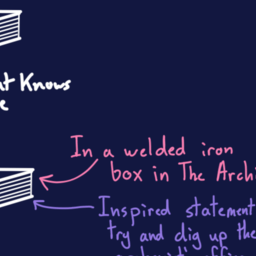 Knows
In a welded iron
box in The Archi
Inspired statement
try and dig up the